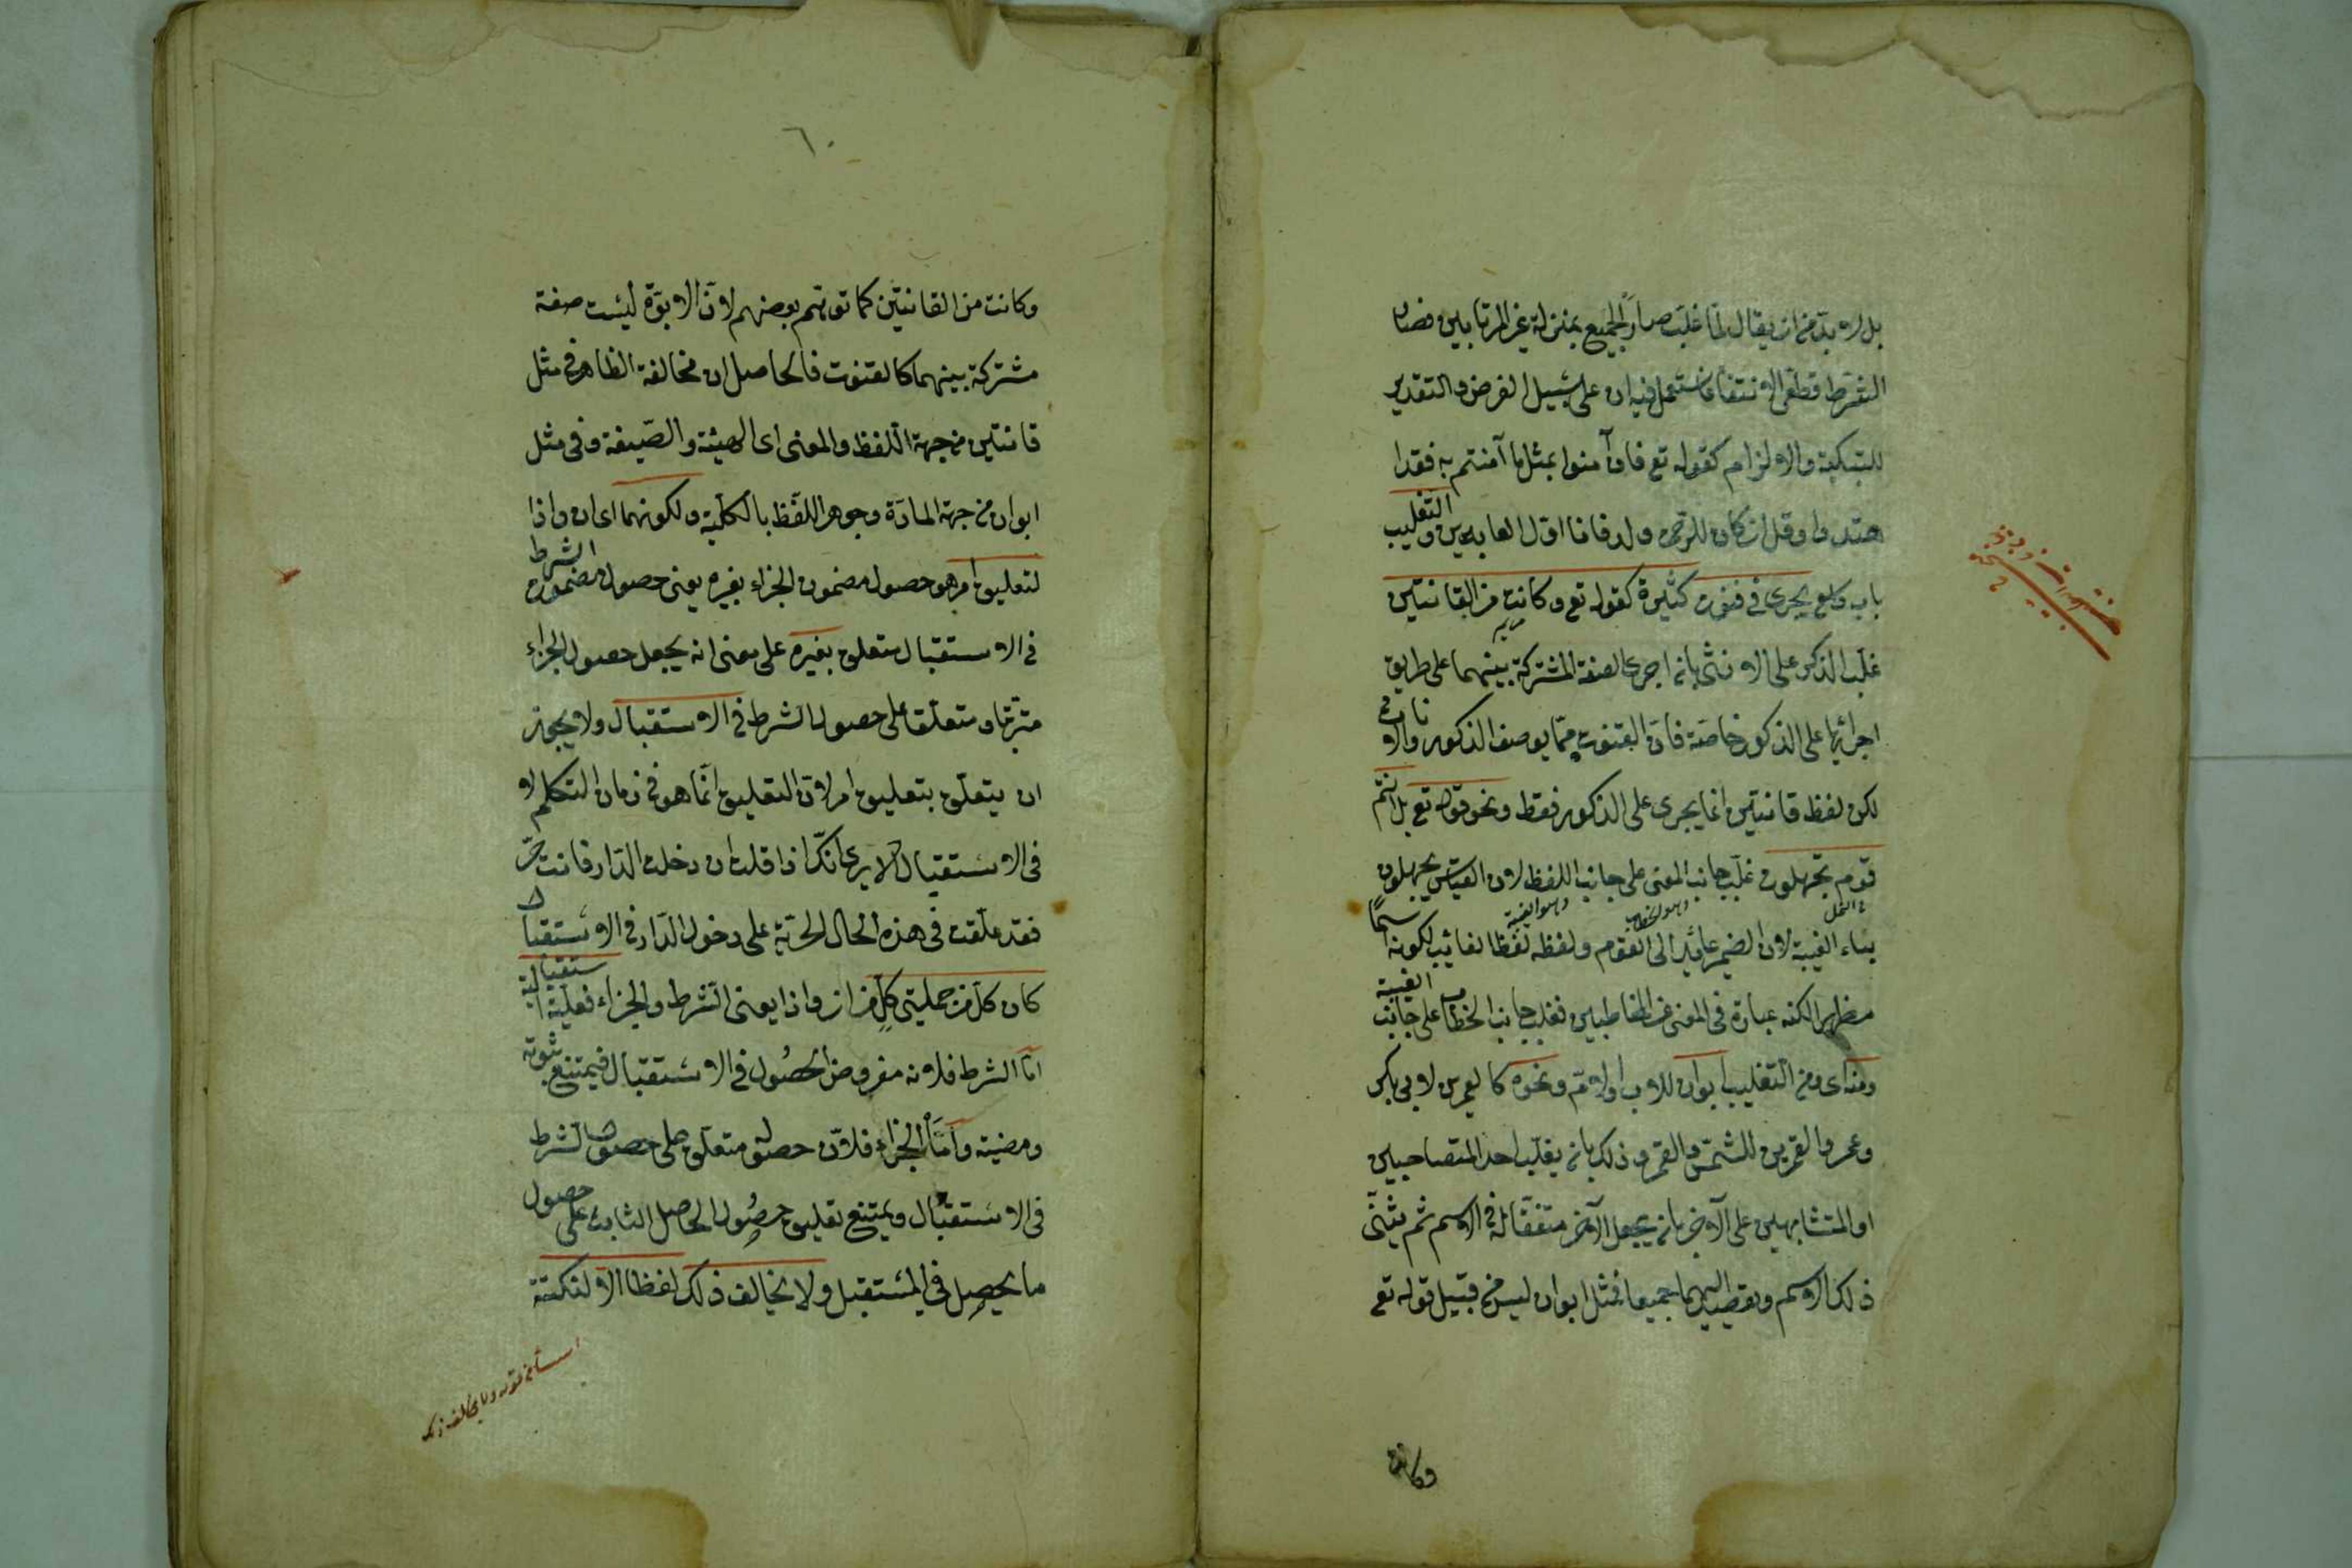 بل لا بد من ان يقال لما غلب صار الجميع بمنزلة غير المرتابين فصار
الشرط قطعى الانتفاء فاستعمل فيه ان على سبيل الفرض والتقدير
للتبكيت والالزام كقوله تع فان آمنوا بمثل ما آمنتم به فقد ا
هتدوا وقل ان كان للرحمن ولد فانا اول العابدين والتغليب
باب واسع يجرى فى فنون كثيرة كقوله تع وكانت من القانتين
مريم
غلب الذكر على الانثى بان اجرى الصفة المشتركة بينهما على طريق
اجرائها على الذكور خاصة فان القنوت مما يوصف الذكور والاناث
لكن لفظ قانتين انما يجرى على الذكور فقط ونحو قوله تع بل انتم
قوم تجهلون غلب جانب المعنى على جانب اللفظ لان القياس يجهلون
بياء الغيبة لان الضمير عائد الى القوم ولفظه لفظ الغائب لكونه اسما
مظهرا لكنه عبارة فى المعنى عن المخاطبين فغلب جانب الخطاب على جانب الغيبة
ومنه اى ومن التغليب ابوان للاب والام ونحوه كالعمرين لابى بكر
وعمر والقمرين للشمس والقمر وذلك بان يغلب احد المتصاحبين
او المتشابهين على الآخر بان يجعل الآخر متفقا له فى الاسم ثم يثنى
ذلك الاسم ويقصد اليهما جميعا فمثل ابوان ليس من قبيل قوله تع
وكانت
٦٠
وكانت من القانتين كما توهم بعضهم لان الابوة ليست صفة
مشتركة بينهما كالقنوت فالحاصل ان مخالفة الظاهر فى مثل
قانتين من جهة اللفظ والمعنى اى الهيئة والصيغة وفى مثل
ابوان من جهة المادة وجوهر اللفظ بالكلية ولكونهما اى ان واذا
لتعليق امر هو حصول مضمون الجزاء بغيره يعنى حصول مضمون الشرط
فى الاستقبال متعلق بغيره على معنى انه يجعل حصول الجزاء
مترتبا ومتعلقا على حصول الشرط فى الاستقبال ولا يجوز
ان يتعلق بتعليق امر لان التعليق انما هو فى زمان التكلم لا
فى الاستقبال الا يرى انك اذا قلت ان دخلت الدار فانت حر
فقد علقت فى هذه الحال الحرية على دخول الدار فى الاستقبال
كان كل من جملتى كل من ان واذا يعنى الشرط والجزاء فعلية استقبالية
اما الشرط فلانه مفروض الحصول فى الاستقبال فيمتنع ثبوته
ومضيه واما الجزاء فلان حصوله متعلق على حصول الشرط
فى الاستقبال ويمتنع تعليق حصول الحاصل الثابت على حصول
ما يحصل فى المستقبل ولا يخالف ذلك لفظا الا لنكتة